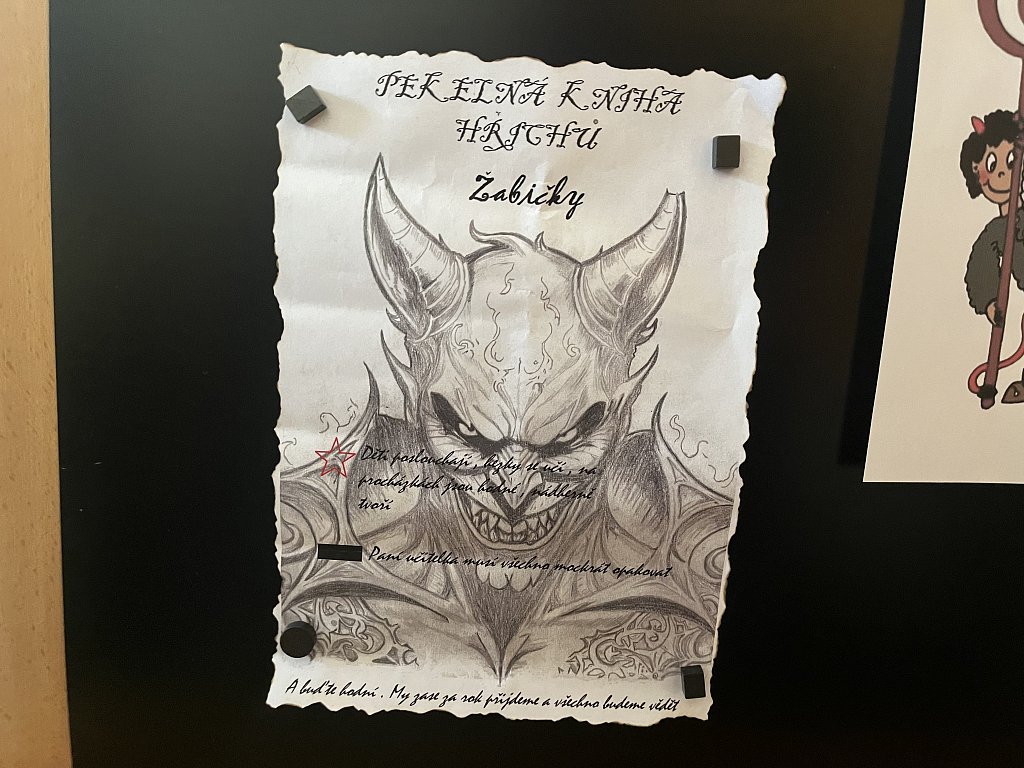 PEKELNÁ KNIHA
HŘÍCHŮ
Žabičky
Děti poslouchají, hezky se učí, na
procházkách jsou hodné, nádherně
tvoří
Paní učitelka musí všechno mockrát opakovat
A buďte hodní. My zase za rok přijdeme a všechno budeme vědět